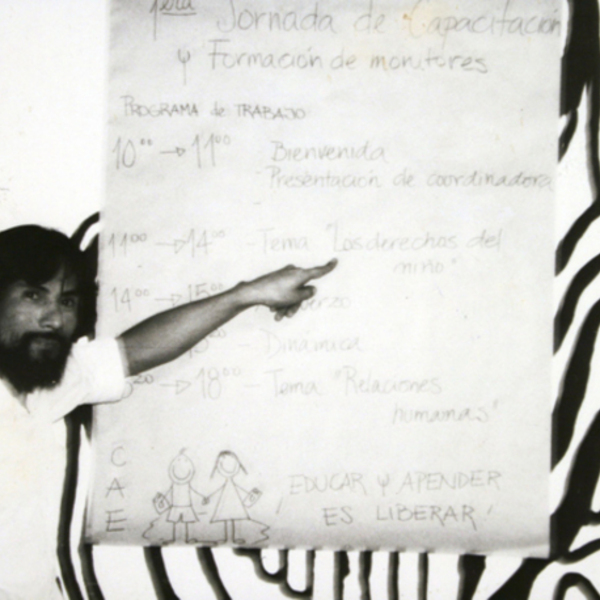 1era Jornada de Capacitación
y Formación de monitores
PROGRAMA de TRABAJO
10°° → 11°° Bienvenida
- Presentación de coordinadora
-
11°° → 14°° - Tema "Los derechos del
niño"
14°° → 15°°
- Dinámica
→ 18°° - Tema "Relaciones
humanas"
CAE
¡EDUCAR Y APENDER
ES LIBERAR!